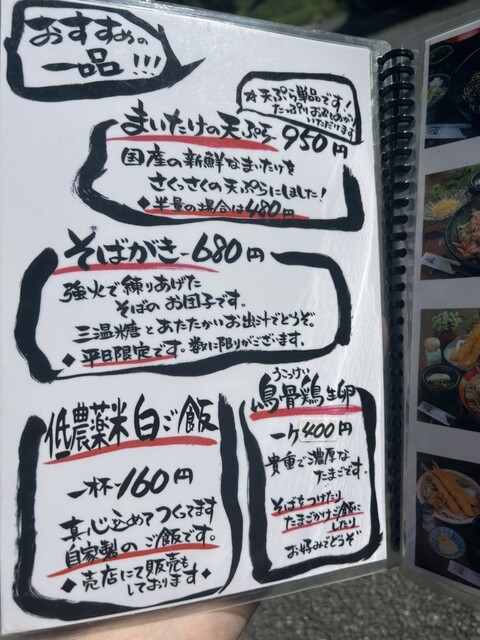 おすすめの
一品!!!
※天ぷら単品です!
たっぷりお召しあがり
いただけます
まいたけの天ぷら 950円
国産の新鮮なまいたけを
さくっさくの天ぷらにしました!
◆半量の場合は480円
そばがき-680円
強火で練りあげた
そばのお団子です。
三温糖とあたたかいお出汁でどうぞ。
◆平日限定です。数に限りがございます。
低農薬米白ご飯
一杯-160円
真心込めてつくてます
自家製のご飯です。
◆売店にて販売も
しております◆
うこっけい
烏骨鶏生卵
一ケ400円
貴重で濃厚な
たまごです。
そばをつけたり
たまごかけご飯に
したり
お好みでどうぞ